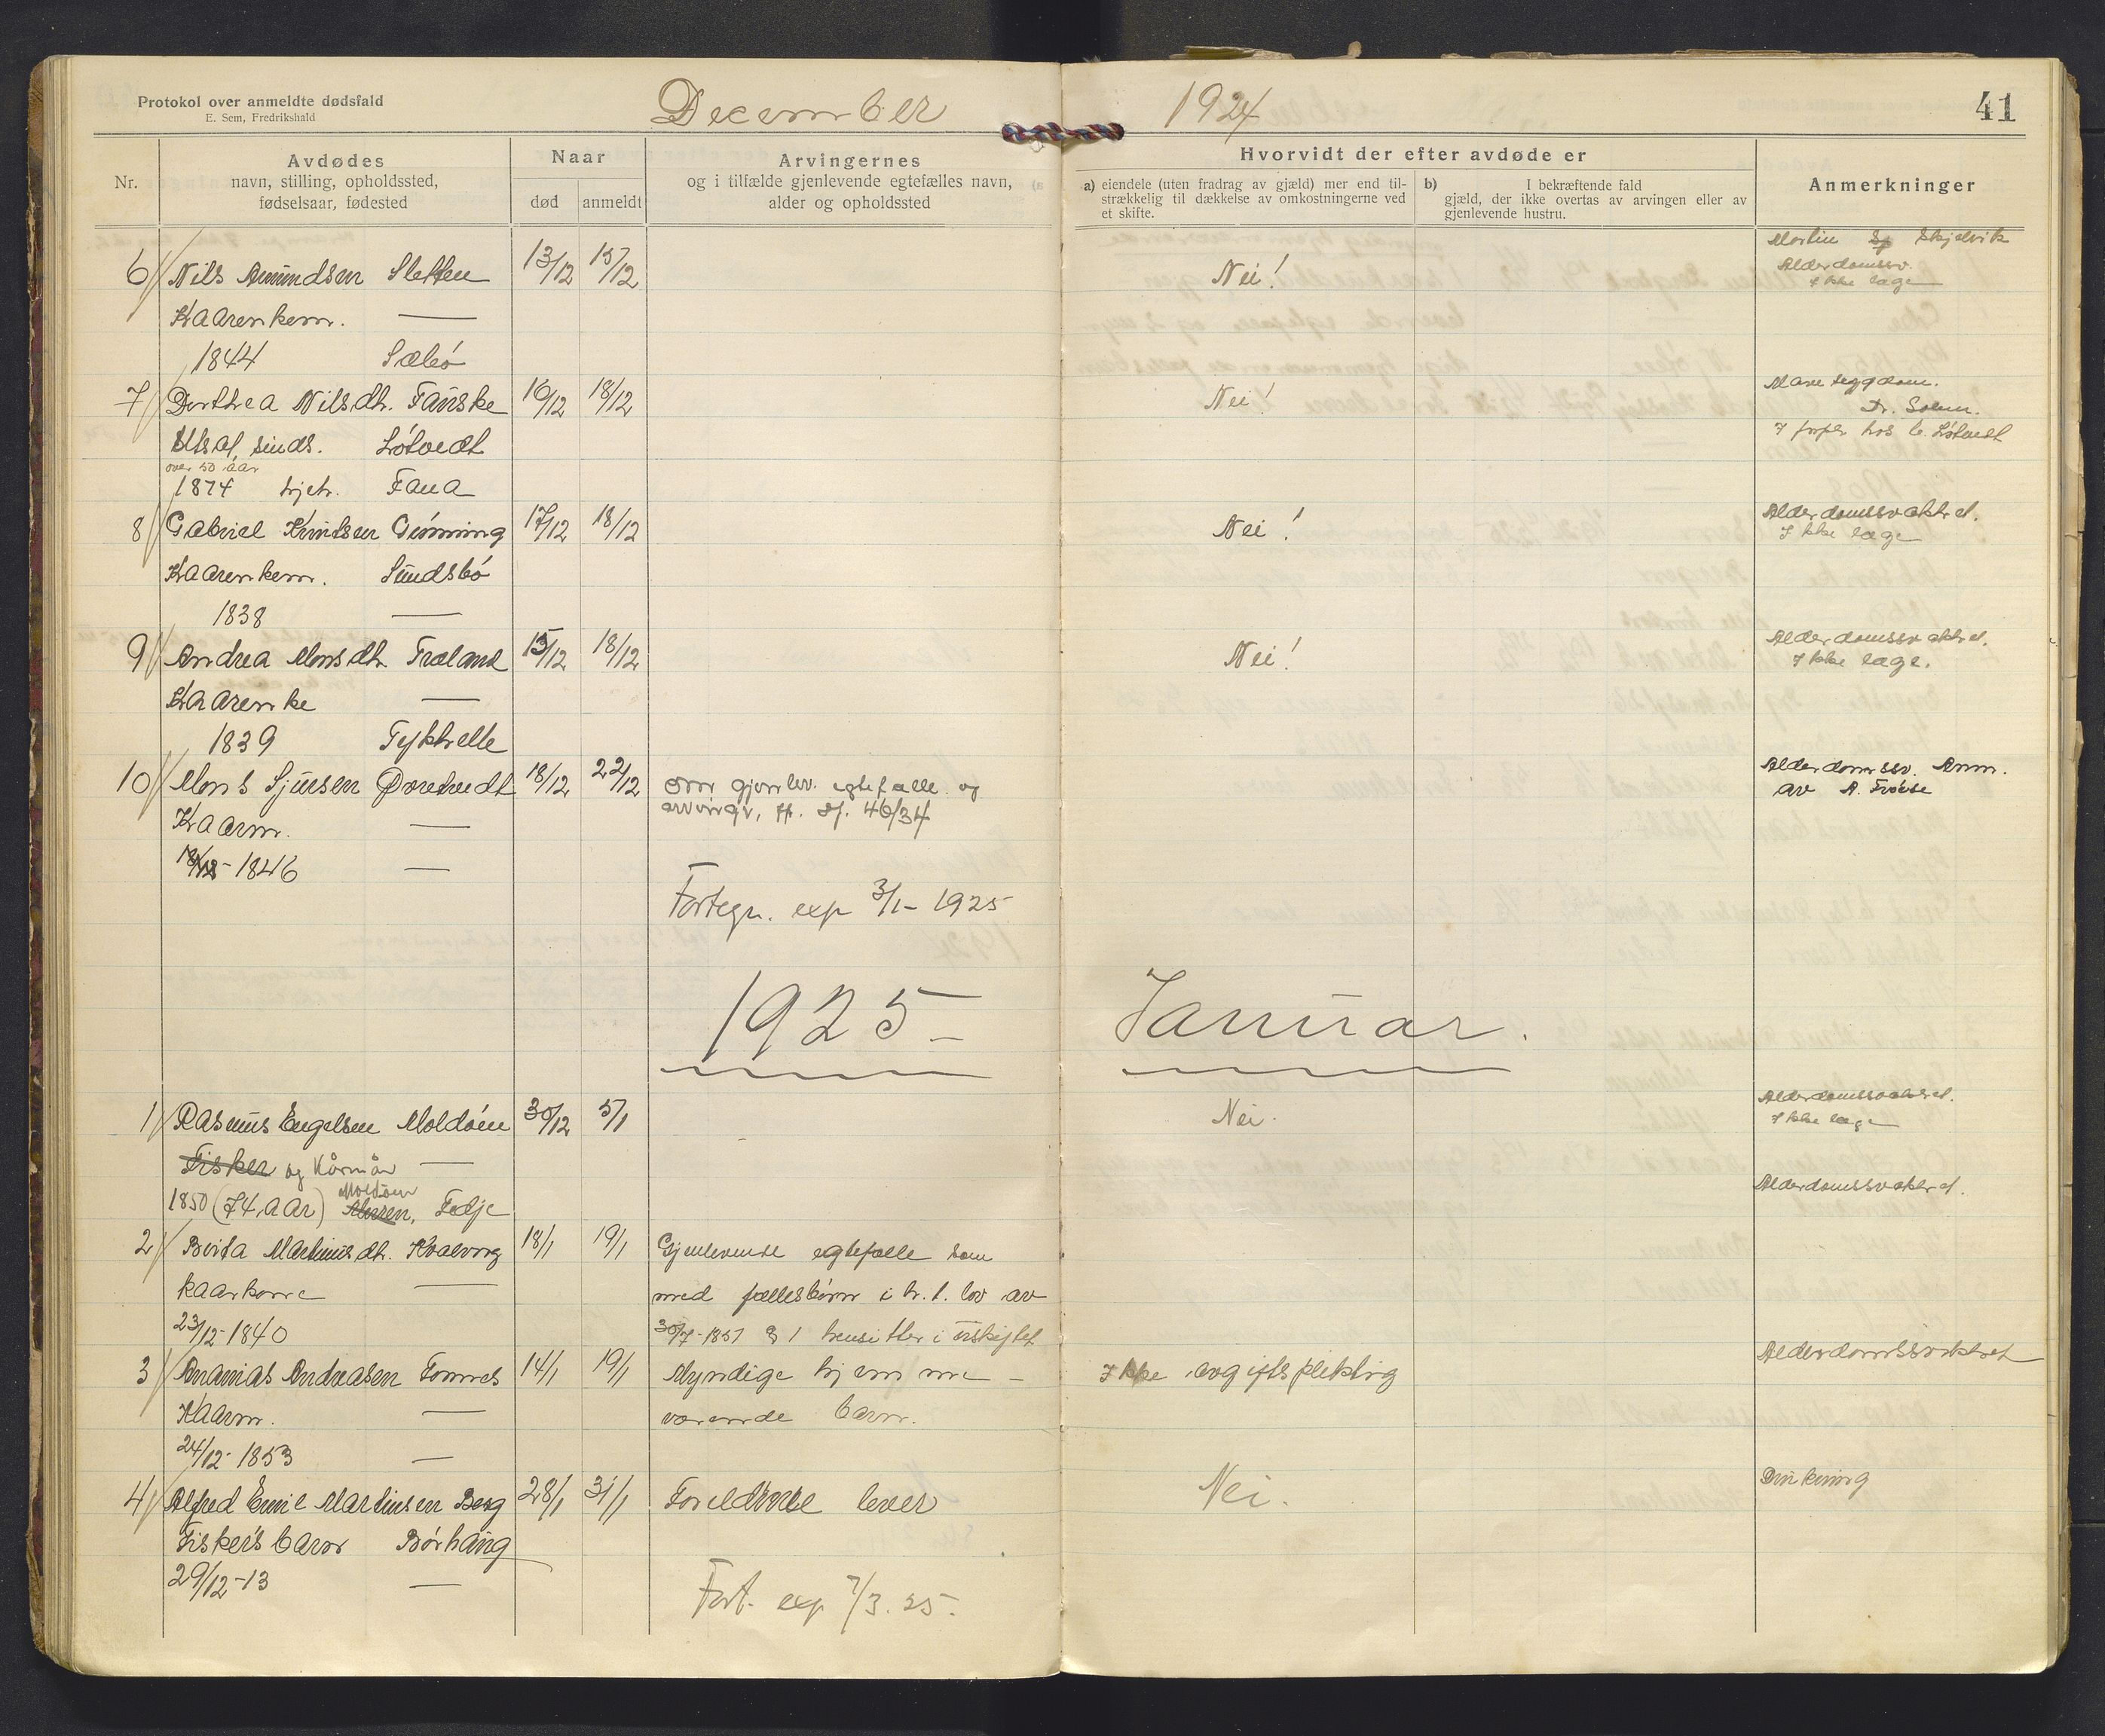 Protokol over anmeldte dødsfald
E. Sem, Fredrikshald
December 1924
41
Nr.
Avdødes
navn, stilling, opholdssted,
fødselsaar, fødested
Naar
død anmeldt
Arvingernes
og i tilfælde gjenlevende egtefælles navn,
alder og opholdssted
Hvorvidt der efter avdøde er
a) eiendele (uten fradrag av gjæld) mer end til-
strækkelig til dækkelse av omkostningerne ved
et skifte.
b) I bekræftende fald
gjæld, der ikke overtas av arvingen eller av
gjenlevende hustru.
Anmerkninger
6/ Nils Amundsen Sletten 13/12 15/12 Nei! Martin Skjelvik
Kaarenkem. — Alderdomssv.
1844 Sæbø Ikke læge
7/ Dorthea Nilsdh. Fanske 16/12 18/12 Nei!
sinds. Løtvedt Dr. Solem.
over 50 aar
1874 Fana hos Løtvedt
8/ Gabriel Knutsen Grimning 17/12 18/12 Nei! Alderdomssvakhet.
Kaarenkem. Sundsbø Ikke læge
1838 —
9/ Andrea Monsdh. Træland 15/12 18/12 Nei! Alderdomssvakhet.
Kaarenke — Ikke læge.
1839
10/ Mons Sjursen 18/12 22/12 om gjenlev. egtefælle og Alderdomssv. Anm.
Kaarm. — arvinger, 46/34 av A.
1846 —
Fortegn. exp 3/1 - 1925
1925 — Januar.
1/ Rasmus Engelsen Moldøen 30/12 5/1 Nei. Alderdomssvakhet.
Fisker og Kårmån — Ikke læge
1850 (74 aar) Moldøen Fedje Alderdomssvakhet.
2/ Brita Martinusdh. Kvalvog 18/1 19/1 Gjenlevende egtefælle som
kaarkone — med fællesbørn i h. t. lov av
23/12-1840 30/7-1851 § 1 hensitter i uskiftet
3/ Ananias Andreasen Tonnes 14/1 19/1 Myndige hjemme- Ikke avgiftspliktig Alderdomssvakhet
Kaarm. — værende barn.
24/12-1853 —
4/ Alfred Emil Martinsen Berg 28/1 31/1 Foreldrene lever Nei. Drukning
Fisker's barn Børhaug
29/12-13 —
Fort. exp 7/3. 25.